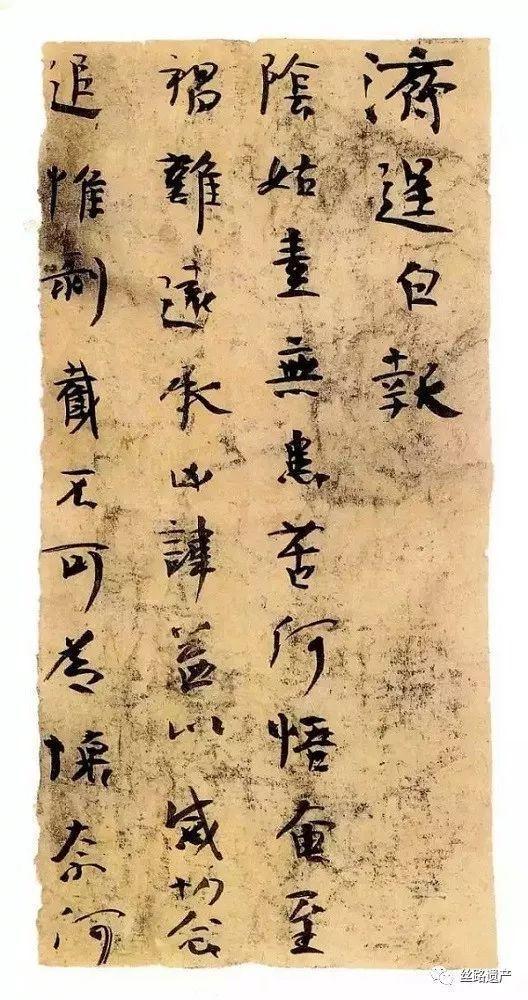 濟逞白報
陰姑素無患苦何悟奄至
禍難遠承凶諱益以感切念
追惟剝截不可為懷奈何
丝路遗产